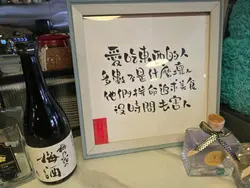 愛吃東西的人
多數不是什麼壞人
他們拼命追求美食
沒時間去害人
梅酒